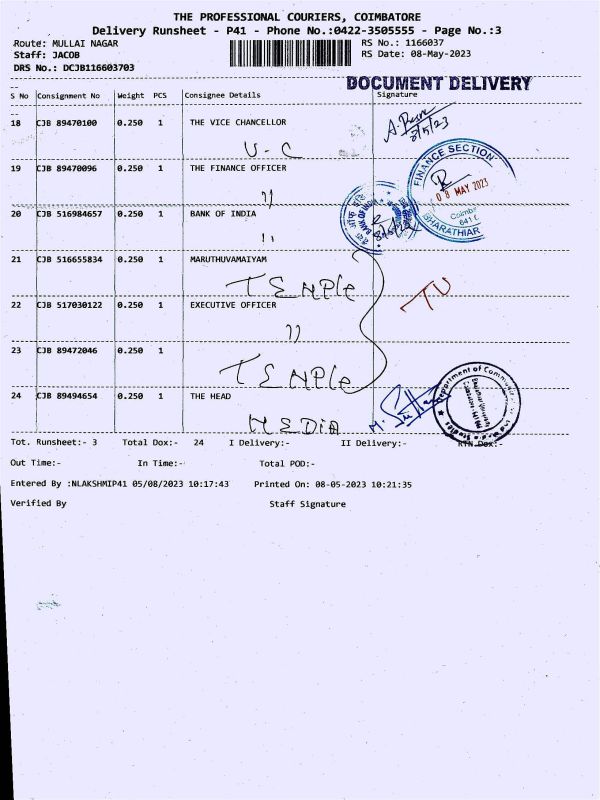 THE PROFESSIONAL COURIERS, COIMBATORE
Delivery Runsheet - P41 - Phone No.:0422-3505555 - Page No.:3
Route: MULLAI NAGAR RS No.: 1166037
Staff: JACOB RS Date: 08-May-2023
DRS No.: DCJB116603703
DOCUMENT DELIVERY
S No Consignment No Weight PCS Consignee Details Signature
18 CJB 89470100 0.250 1 THE VICE CHANCELLOR
V-C
8/5/23
19 CJB 89470096 0.250 1 THE FINANCE OFFICER
FINANCE SECTION
08 MAY 2023
BHARATHIAR
"
20 CJB 516984657 0.250 1 BANK OF INDIA
BANK OF INDIA
"
21 CJB 516655834 0.250 1 MARUTHUVAMAIYAM
TEMPLe
TU
22 CJB 517030122 0.250 1 EXECUTIVE OFFICER
"
23 CJB 89472046 0.250 1
TEMPLe
24 CJB 89494654 0.250 1 THE HEAD
MEDIA
Tot. Runsheet:- 3 Total Dox:- 24 I Delivery:- II Delivery:- RTN Dox:-
Out Time:- In Time:- Total POD:-
Entered By :NLAKSHMIP41 05/08/2023 10:17:43 Printed On: 08-05-2023 10:21:35
Verified By Staff Signature